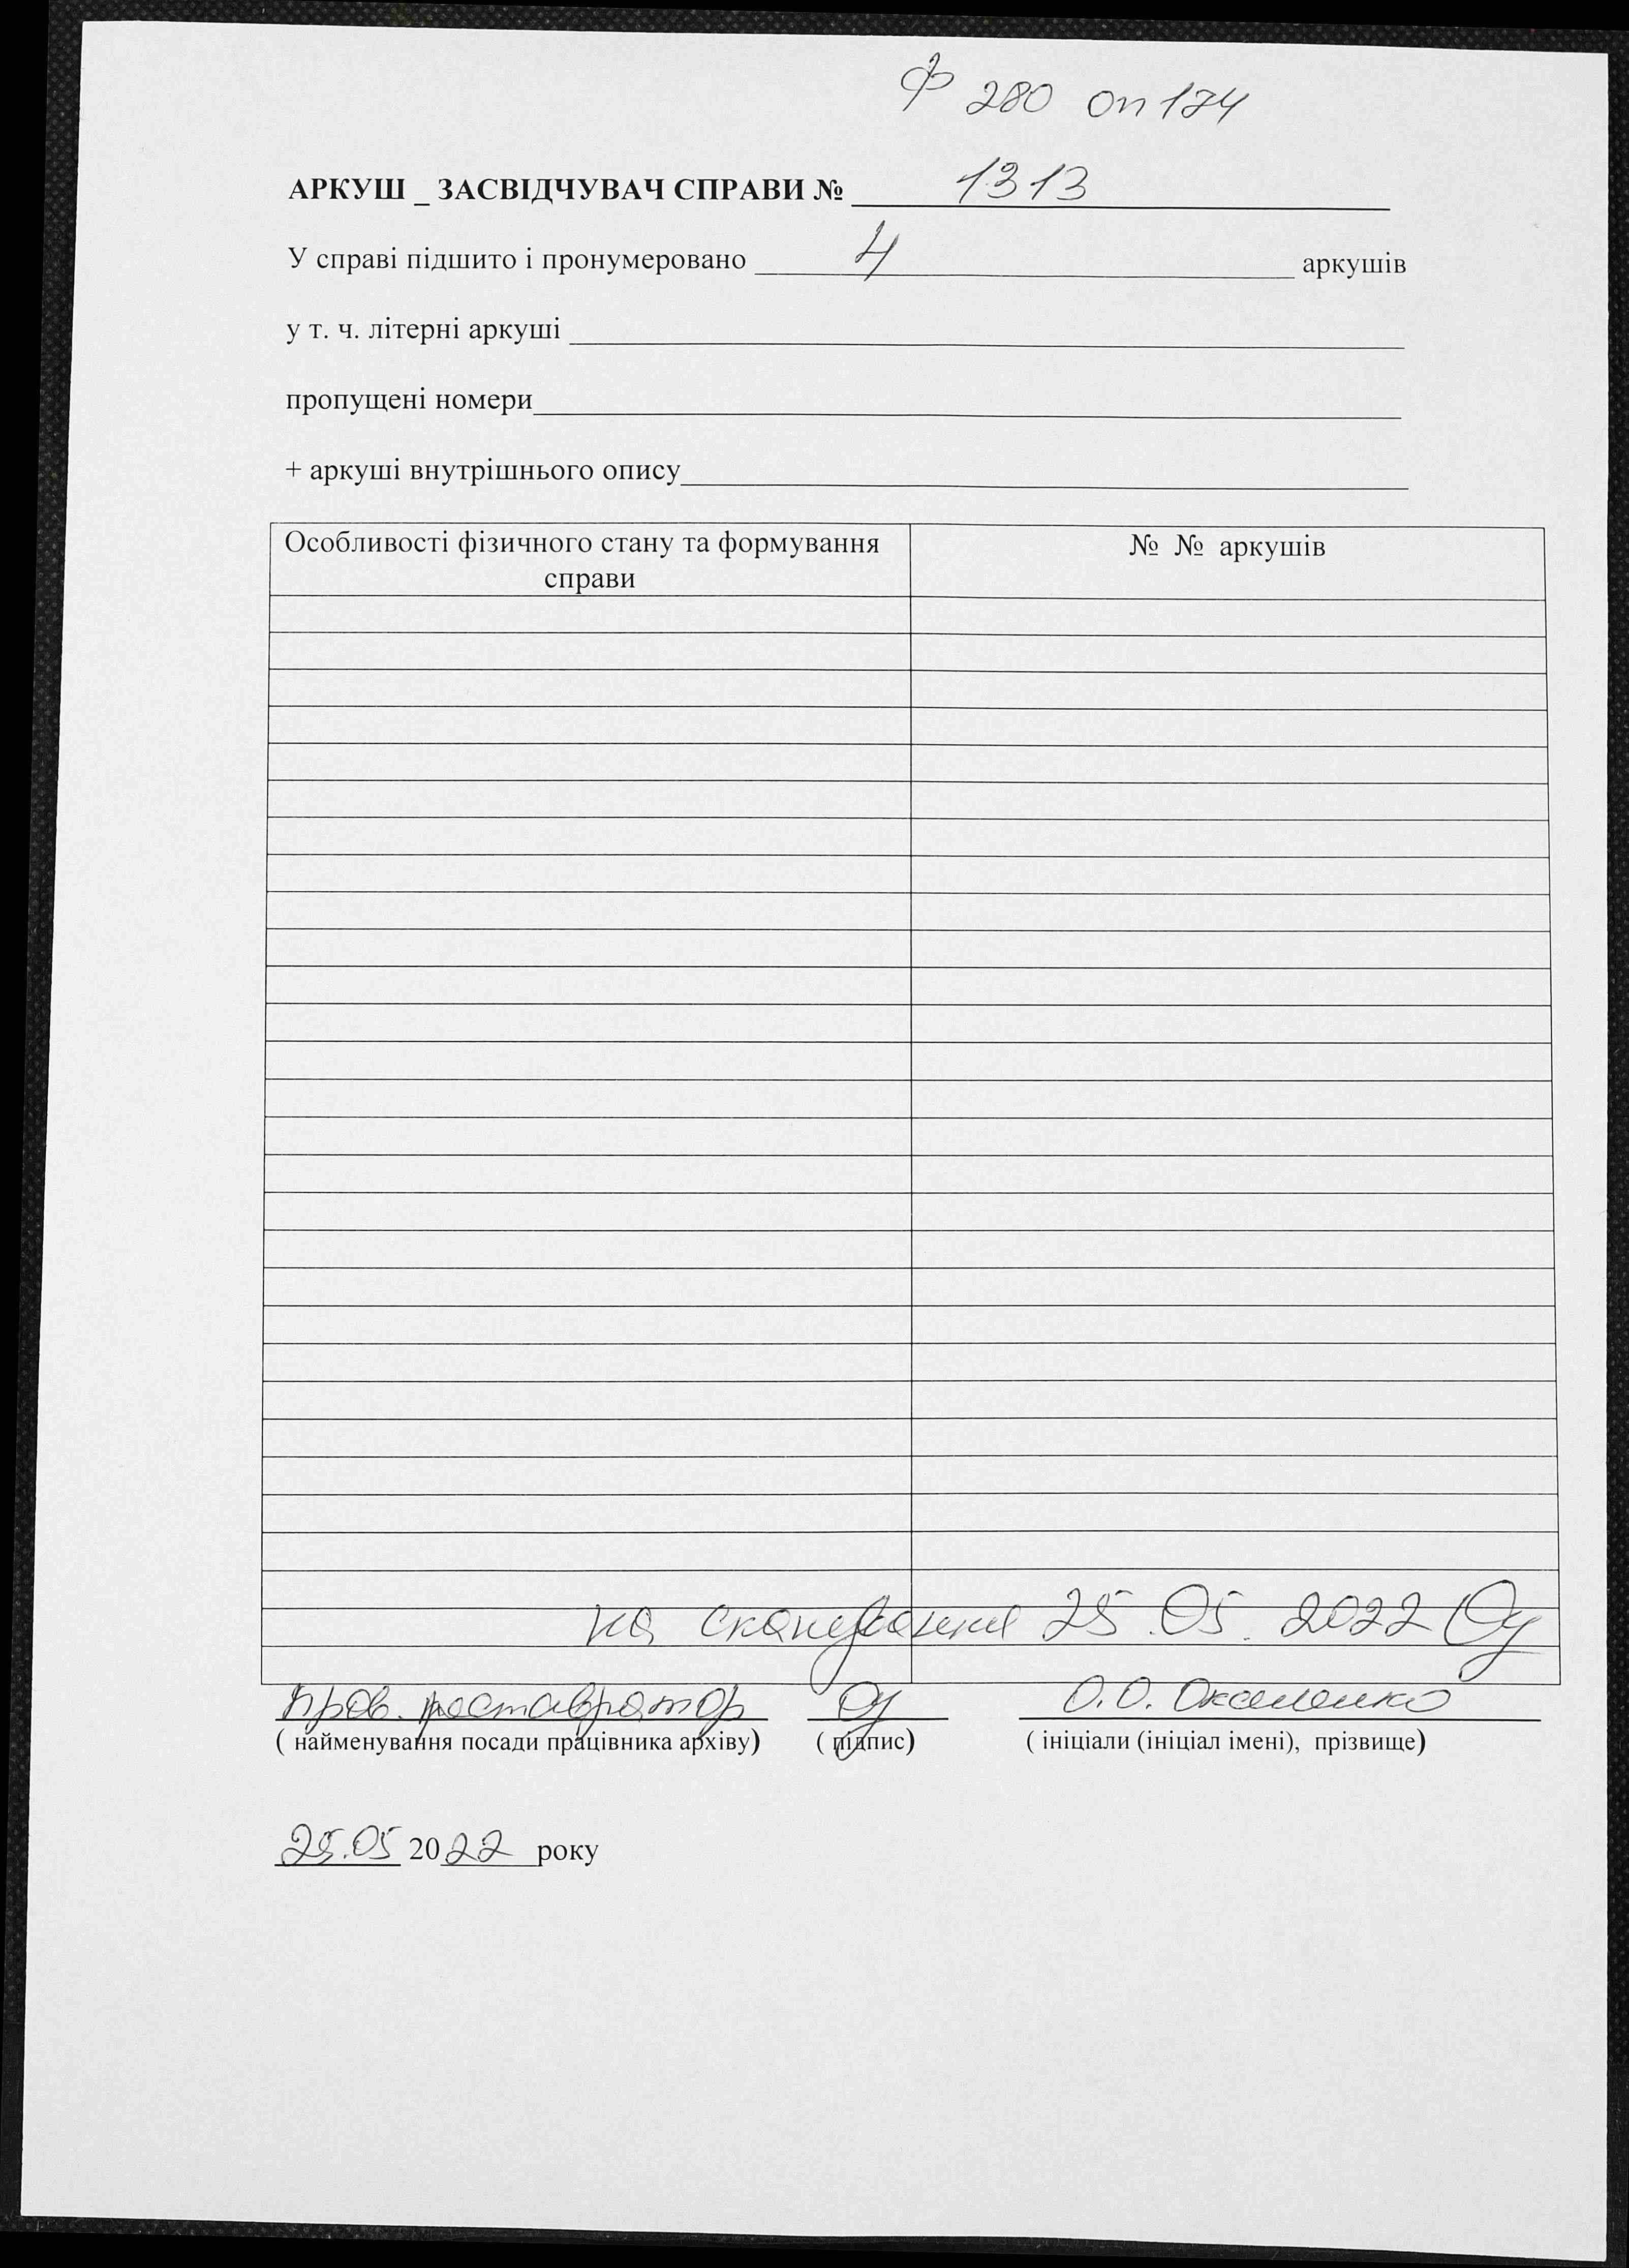 Ф 280 оп 174
АРКУШ _ ЗАСВІДЧУВАЧ СПРАВИ № 1313
У справі підшито і пронумеровано 4 аркушів
у т. ч. літерні аркуші
пропущені номери
+ аркуші внутрішнього опису
Особливості фізичного стану та формування
справи
№ № аркушів
на сканування 25.05.2022
пров. реставратор О.О. Оксененко
( найменування посади працівника архіву) ( підпис) ( ініціали (ініціал імені), прізвище)
25.05 2022 року